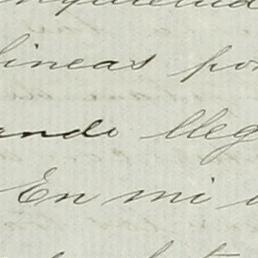 lineas por
ando lleg
En mi